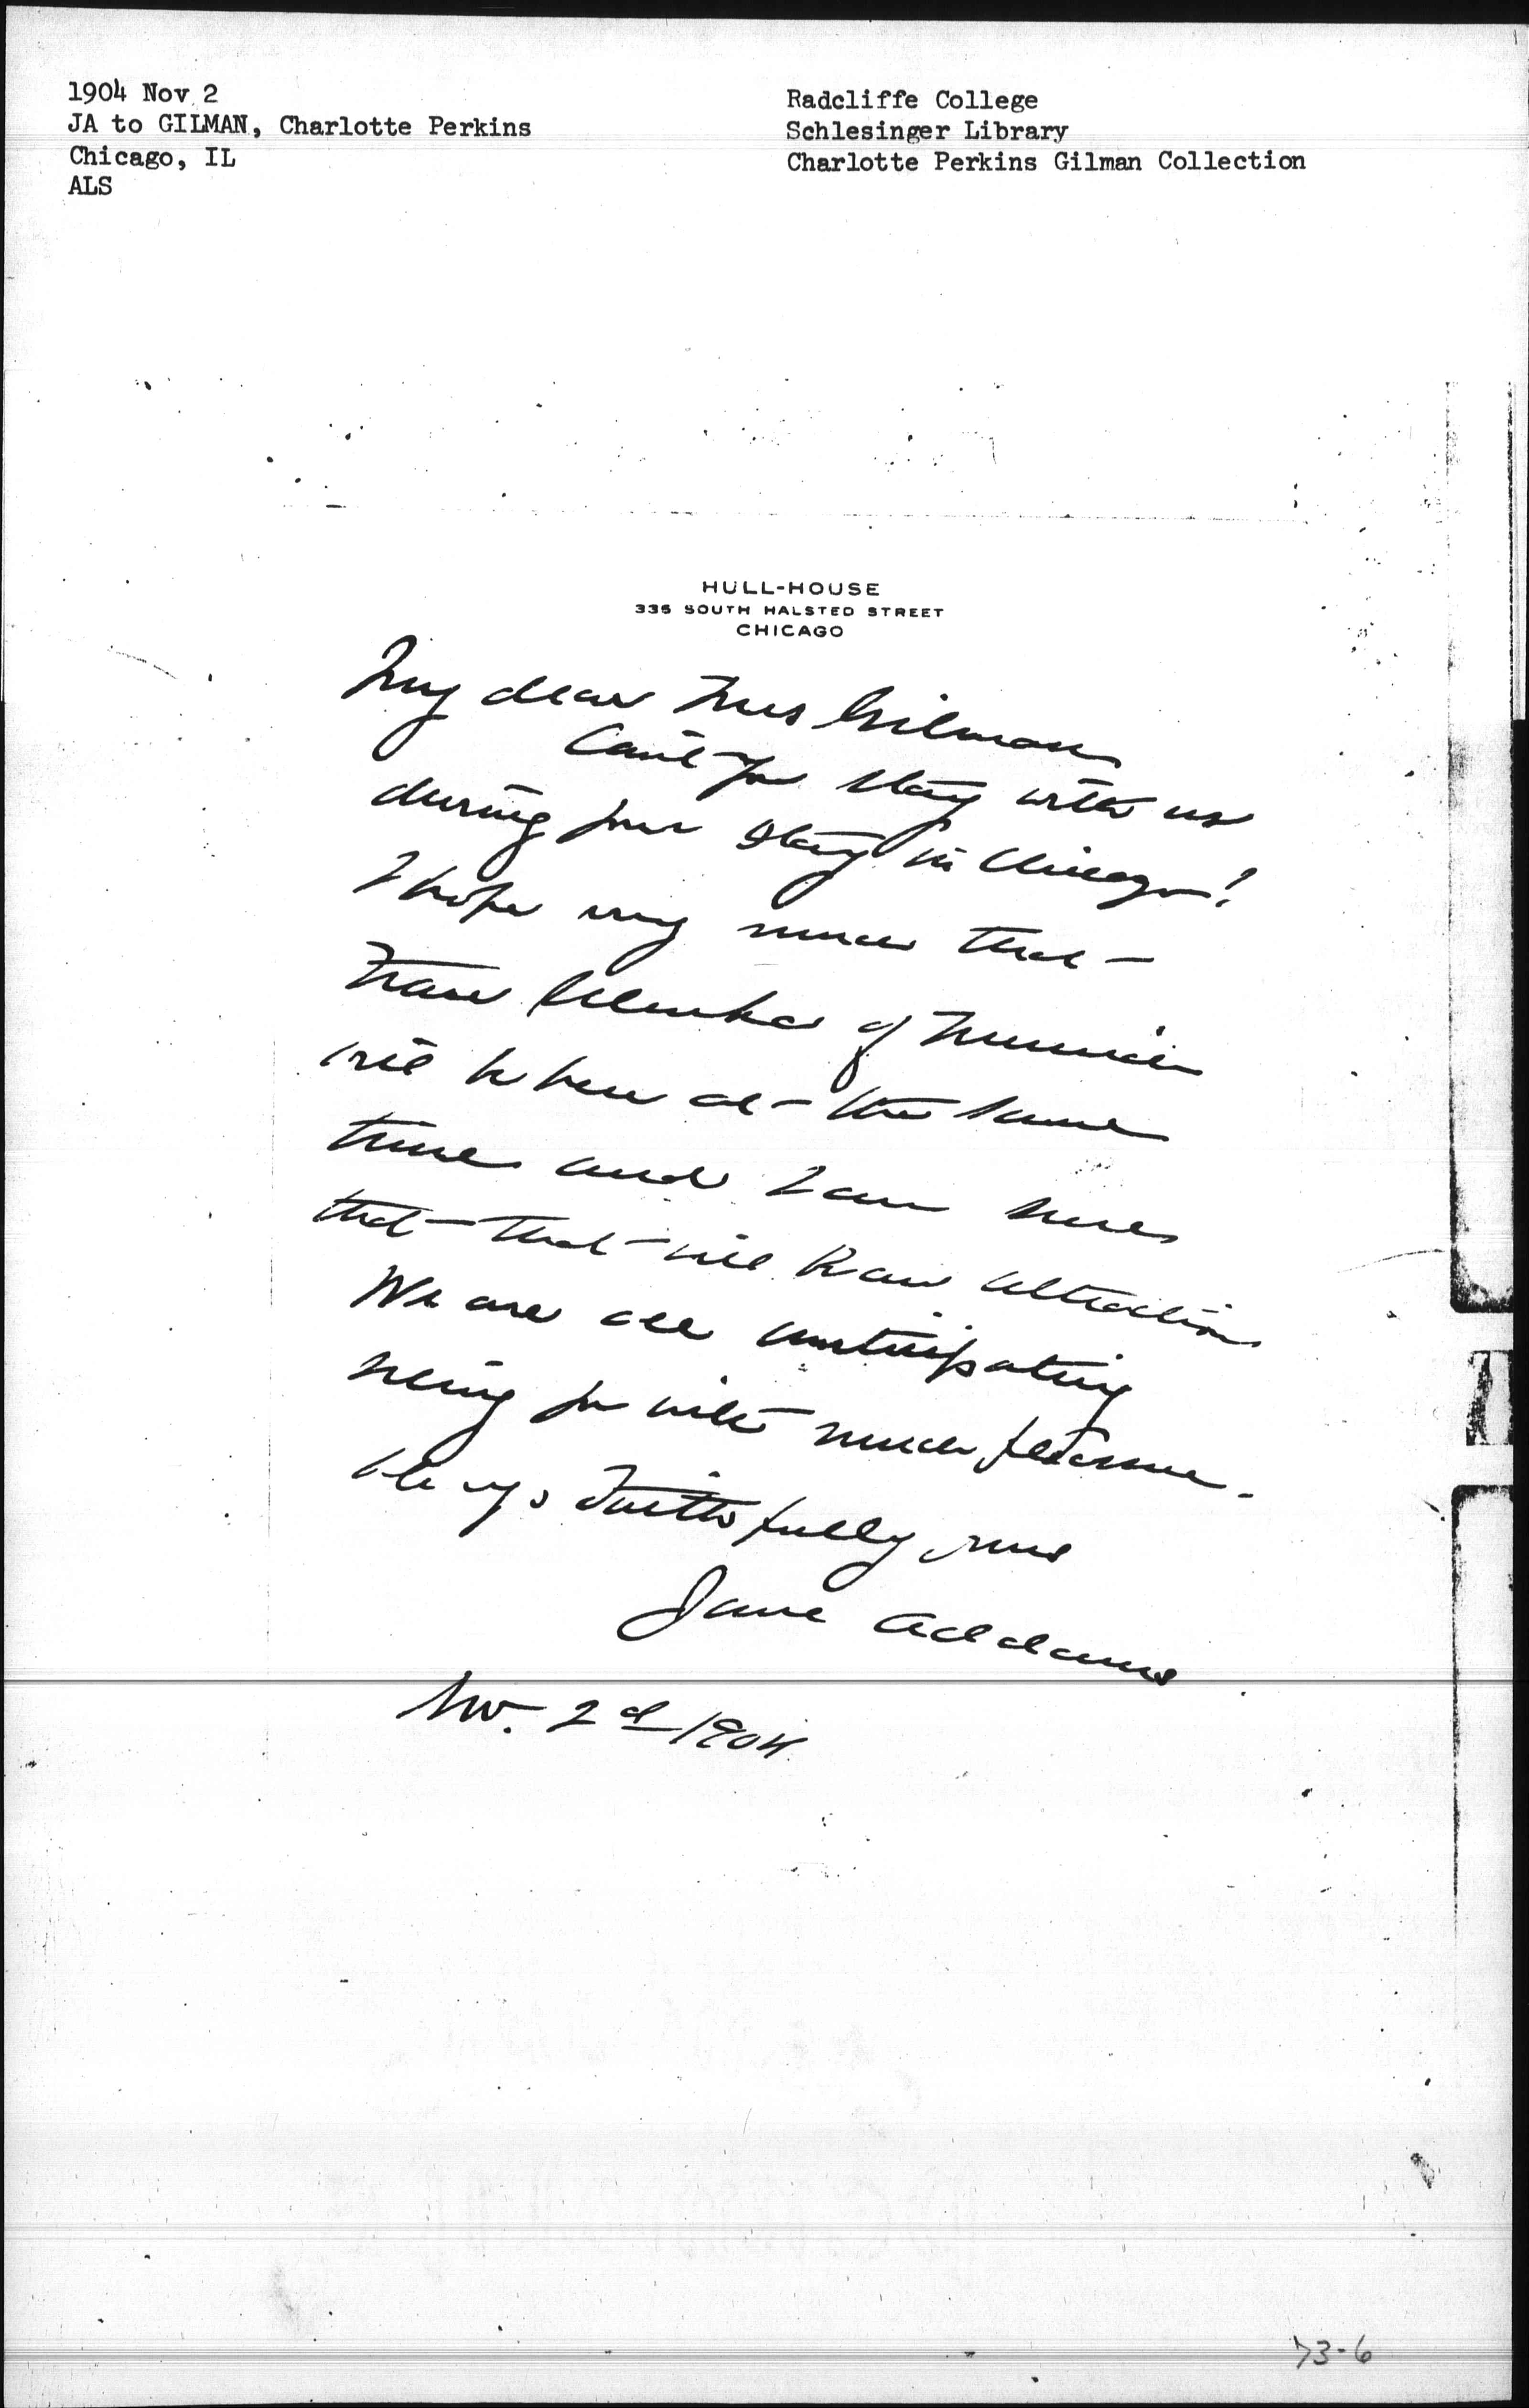 1904 Nov 2
JA to GILMAN, Charlotte Perkins
Chicago, IL
ALS
Radcliffe College
Schlesinger Library
Charlotte Perkins Gilman Collection
HULL-HOUSE
335 SOUTH HALSTED STREET
CHICAGO
My dear Mrs Gilman
Can't you stay with us
during your stay in Chicago?
I hope very much that
Frau of Munich
will be here at the same
time and I am sure
that that will be an attraction
We are all anticipating
seeing you with much pleasure.
Always faithfully yours
Jane Addams
Nov. 2d 1904
73-6